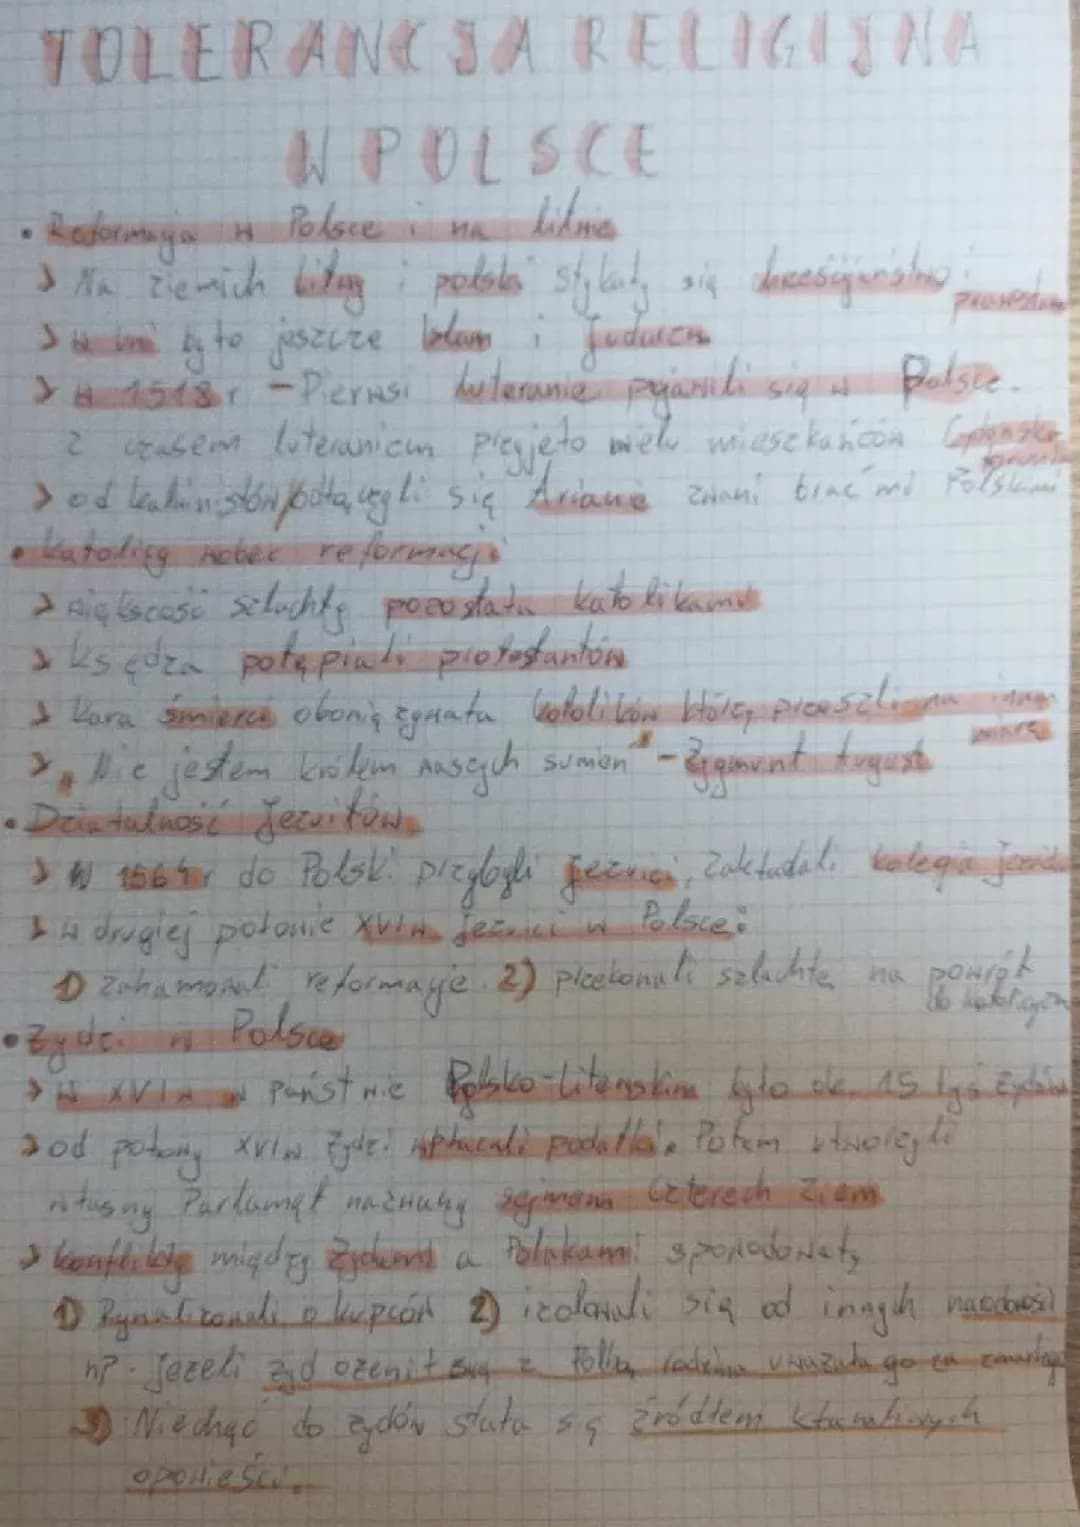 TOLERANCJA RELIGIJNA
W POLSCE
• Reformacja w Polsce i na Litwie
> Na ziemich Litwy i polski stykały się chrześcijaństwo i
> było jeszcze Islam i Judaizm
> W 1518 r - Pierwsi luteranie pojawili się w Polsce.
Z czasem luteranizm przyjeło wielu mieszkańców
> od kalwinistów odłączyli się Arianie zwani braćmi Polskimi
• Katolicy wobec reformacji
> większość szlachty pozostała katolikami
> Księdza potępiali protestantów
> Kara śmierci obowiązywała katolików którzy przeszli na inną
wiarę
> „Nie jestem królem naszych sumień" - Zygmunt August
• Działalność Jezuitów
> W 1564 r do Polski przybyli Jezuici, zakładali kolegia
> w drugiej połowie XVI w Jezuici w Polsce:
1) zahamowali reformacje 2) przekonali szlachtę na powrót
do
• Żydzi w Polsce
> W XVI w w Państwie Polsko-Litewskim było ok. 15 tyś żydów
> od połowy XVI w Żydzi wpłacali podatki. Potem utworzyli
własny Parlamęt nazwany sejmem Czterech Ziem
> konflikty między Żydami a Polakami spowodowały
1) Rywalizowali o kupców 2) izolowali się od innych narodowości
np. Jeżeli żyd ożenił się z Polką rodzina uważała go za zmarłego
3) Niechęć do żydów stała się źródłem kłamliwych
opowieści.